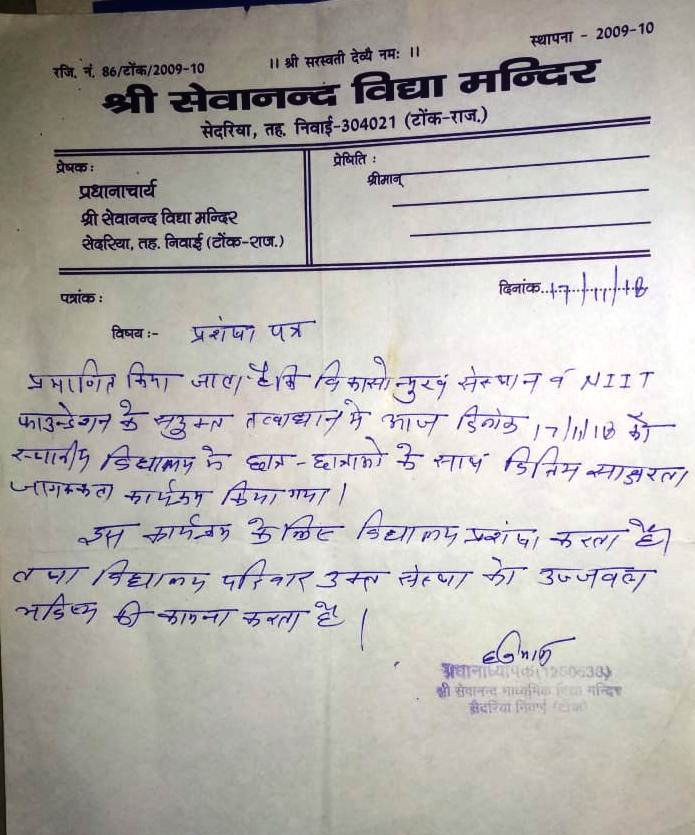 रजि. नं. 86/टोंक/2009-10
॥ श्री सरस्वती देव्यै नमः ॥
स्थापना - 2009-10
श्री सेवानन्द विद्या मन्दिर
सेदरिया, तह. निवाई-304021 (टोंक-राज.)
प्रेषक :
प्रधानाचार्य
श्री सेवानन्द विद्या मन्दिर
सेदरिया, तह. निवाई (टोंक-राज.)
प्रेषिति :
श्रीमान्
पत्रांक :
दिनांक..17/11/18
विषय :- प्रशंषा पत्र
प्रमाणित किया जाता है कि विकासोन्मुख संस्थान व NIIT
फाउन्डेशन के सयुक्त तत्वाधान मे आज दिनांक 17/11/18 को
स्थानीय विद्यालय के छात्र-छात्राओ के साथ वित्तिय साक्षरता
जागरूकता कार्यक्रम किया गया।
इस कार्यक्रम के लिए विद्यालय प्रशंषा करता है।
तथा विद्यालय परिवार उक्त संस्था को उज्जवल
भविष्य की कामना करता है।
प्रधानाध्यापक
श्री सेवानन्द माध्यमिक विद्या मन्दिर
सेदरिया निवाई (टोंक)